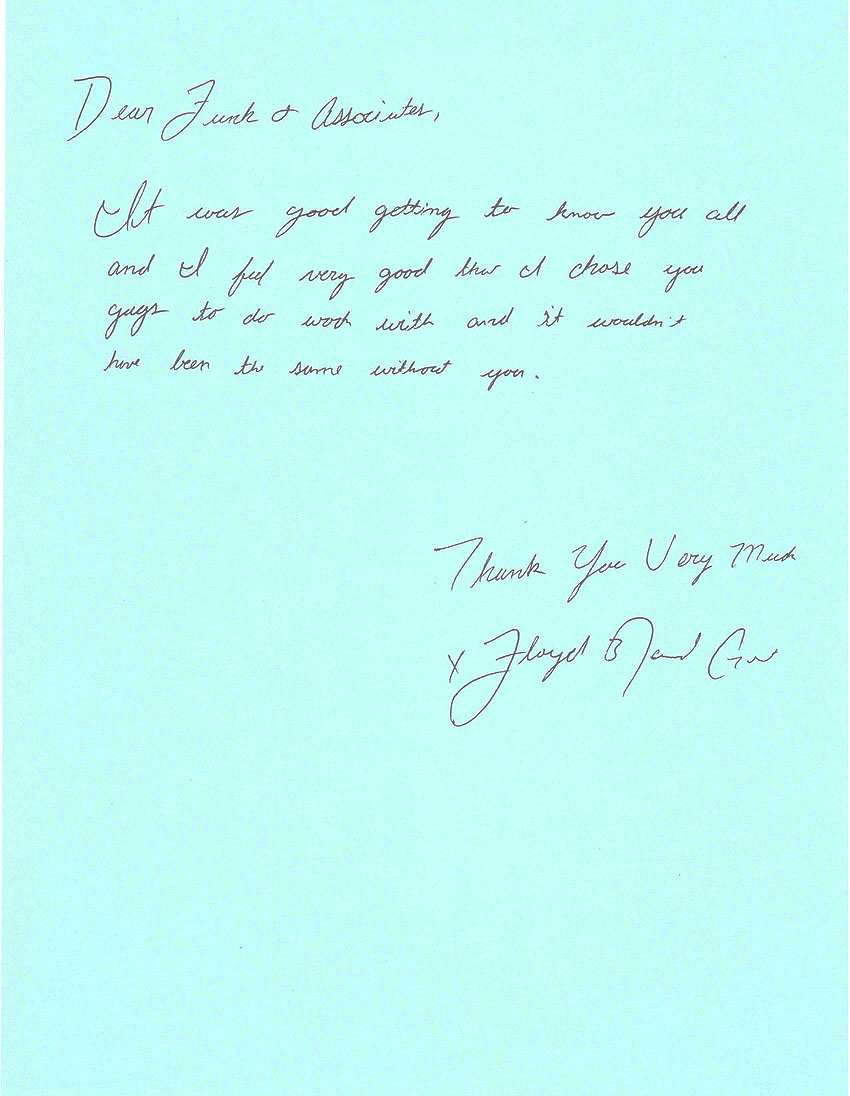 Dear Funk & Associates,
It was good getting to know you all
and I feel very good that I chose you
guys to do work with and it wouldn't
have been the same without you.
Thank You Very Much
x Floyd B